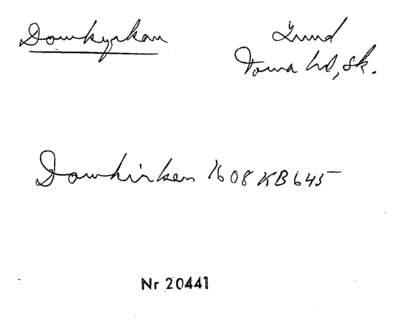 Domkyrkan
Lund
Torna hd, Sk.
Domkirken 1608 KB 645
Nr 20441